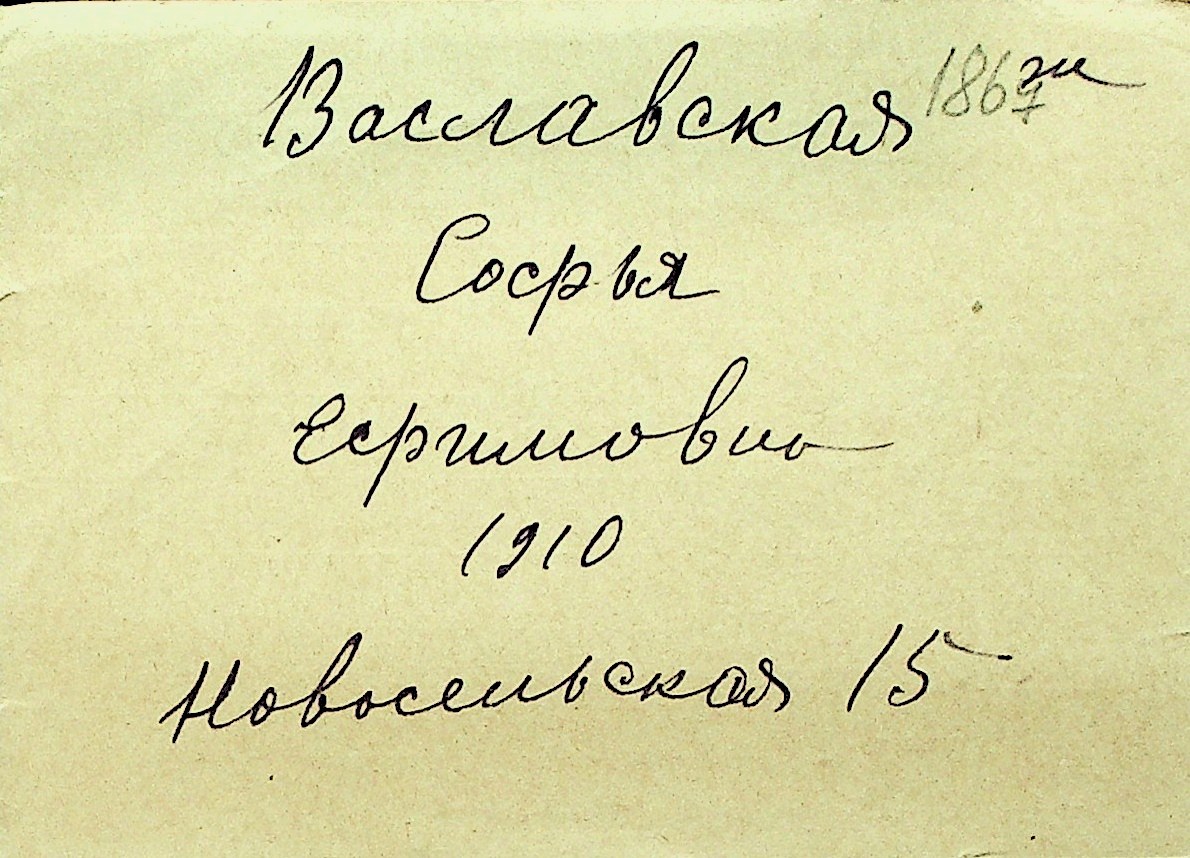 Ваславская
Софья
Ефимовна
1910
Новосельская 15